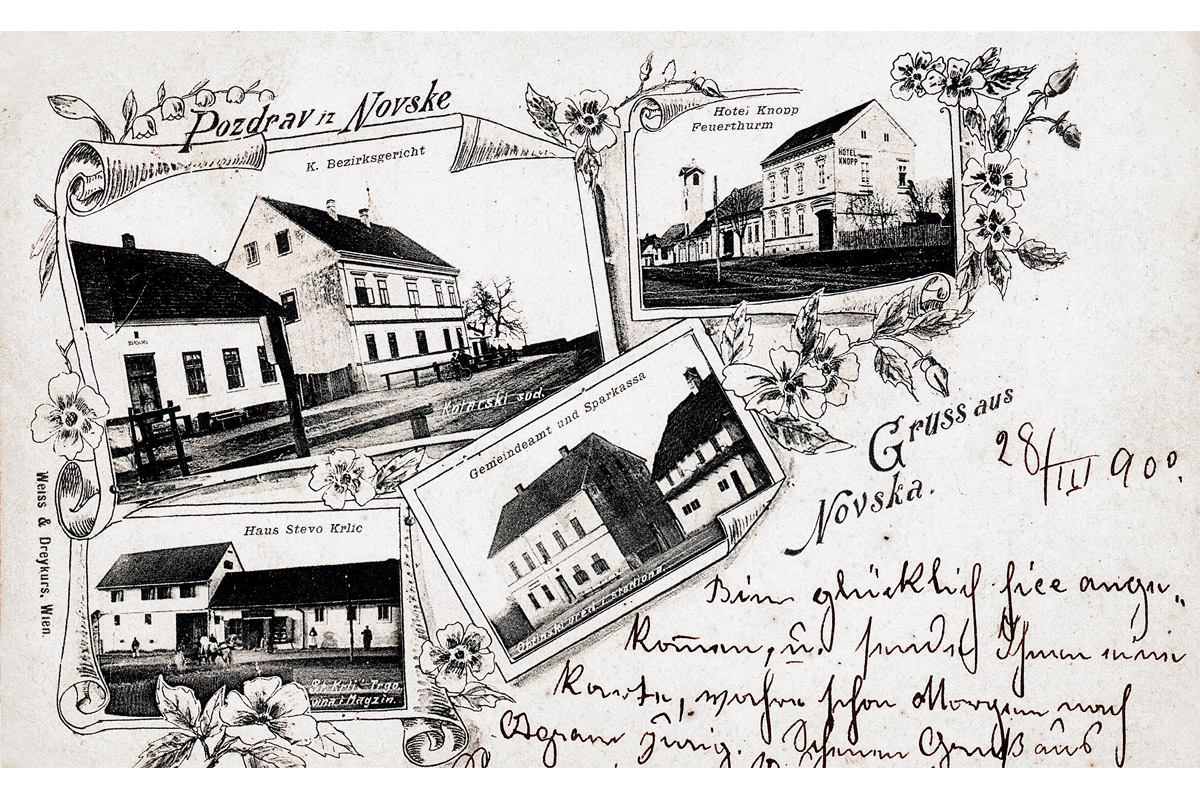 Pozdrav iz Novske
K. Bezirksgericht
Kotarski sud.
Hotel Knopp
Feuerthurm
HOTEL
KNOPP
Gemeindeamt und Sparkassa
Obćinski ured i štediona.
Haus Stevo Krlic
St. Krlić Trgo,
vina i Magzin.
Weiss & Dreykurs, Wien.
Gruss aus
Novska.
28/III 900.
Bin glücklich hier ange„
kom̅en, u. sende Ihnen eine
Karte, schon Morgen nach
Agram Gruß aus